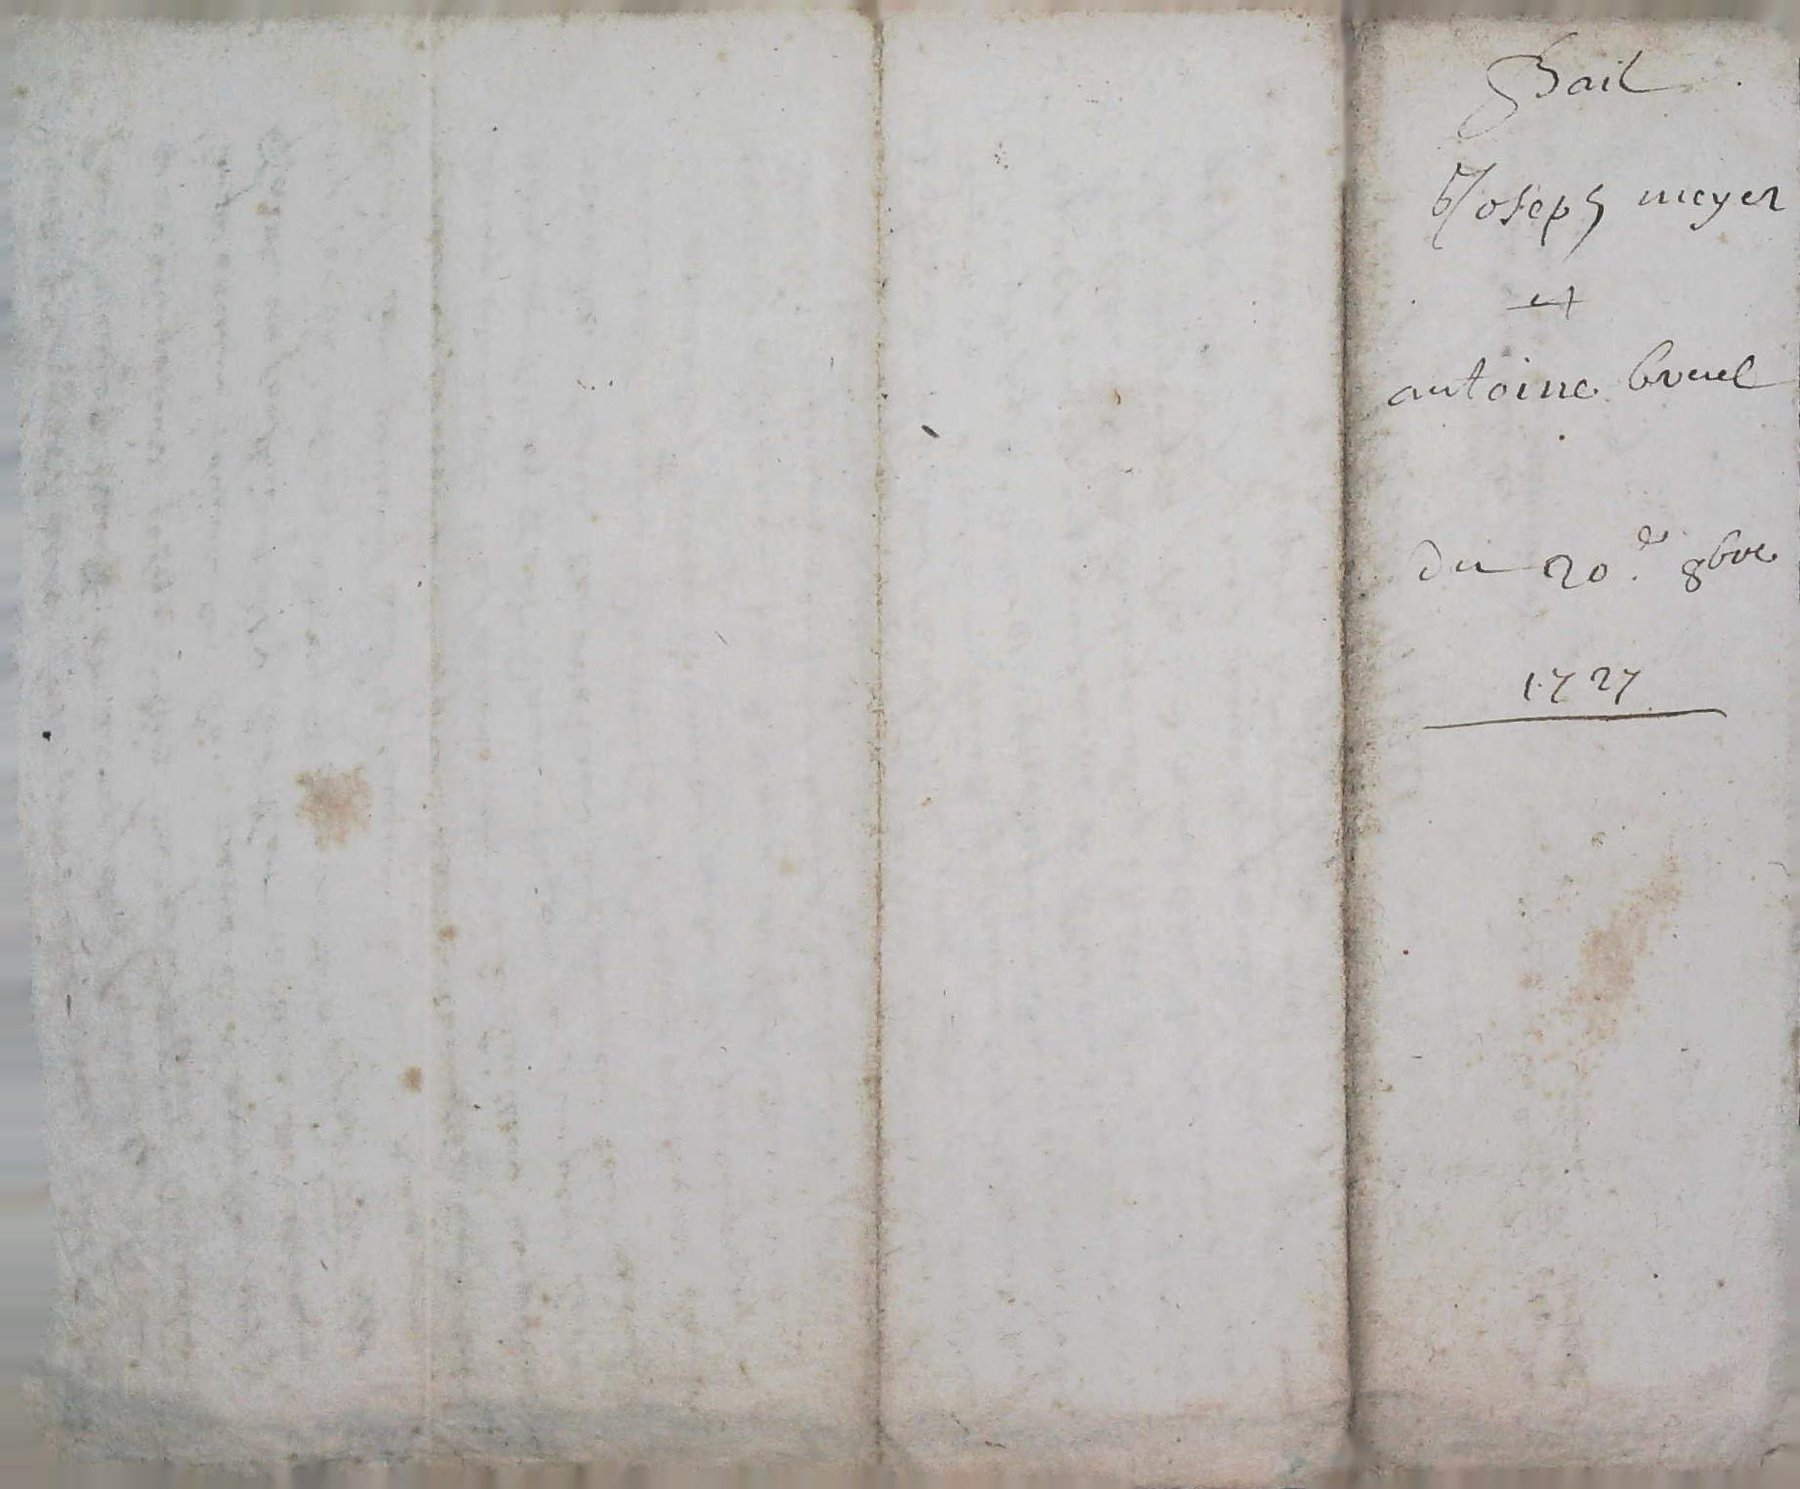 Bail
Joseph meyer
et
antoine breuel
du 20.e 8bre
1727